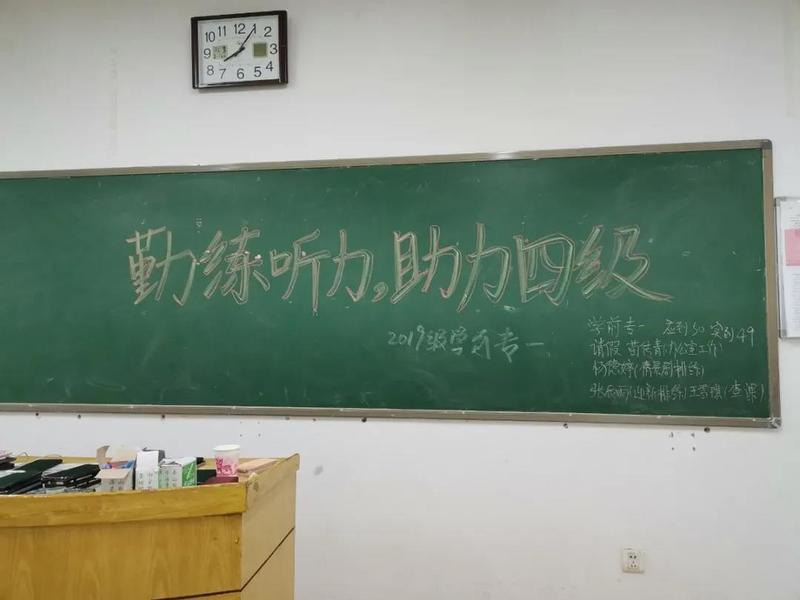 11 12 1
10 2
9 3
8 4
7 6 5
勤练听力,助力四级
2019级学前专一
学前专一 应到50 实到49
请假 苗佳青(办公室工作)
杨悠婷(情景剧排练)
(迎新排练)王雪琪(查课)